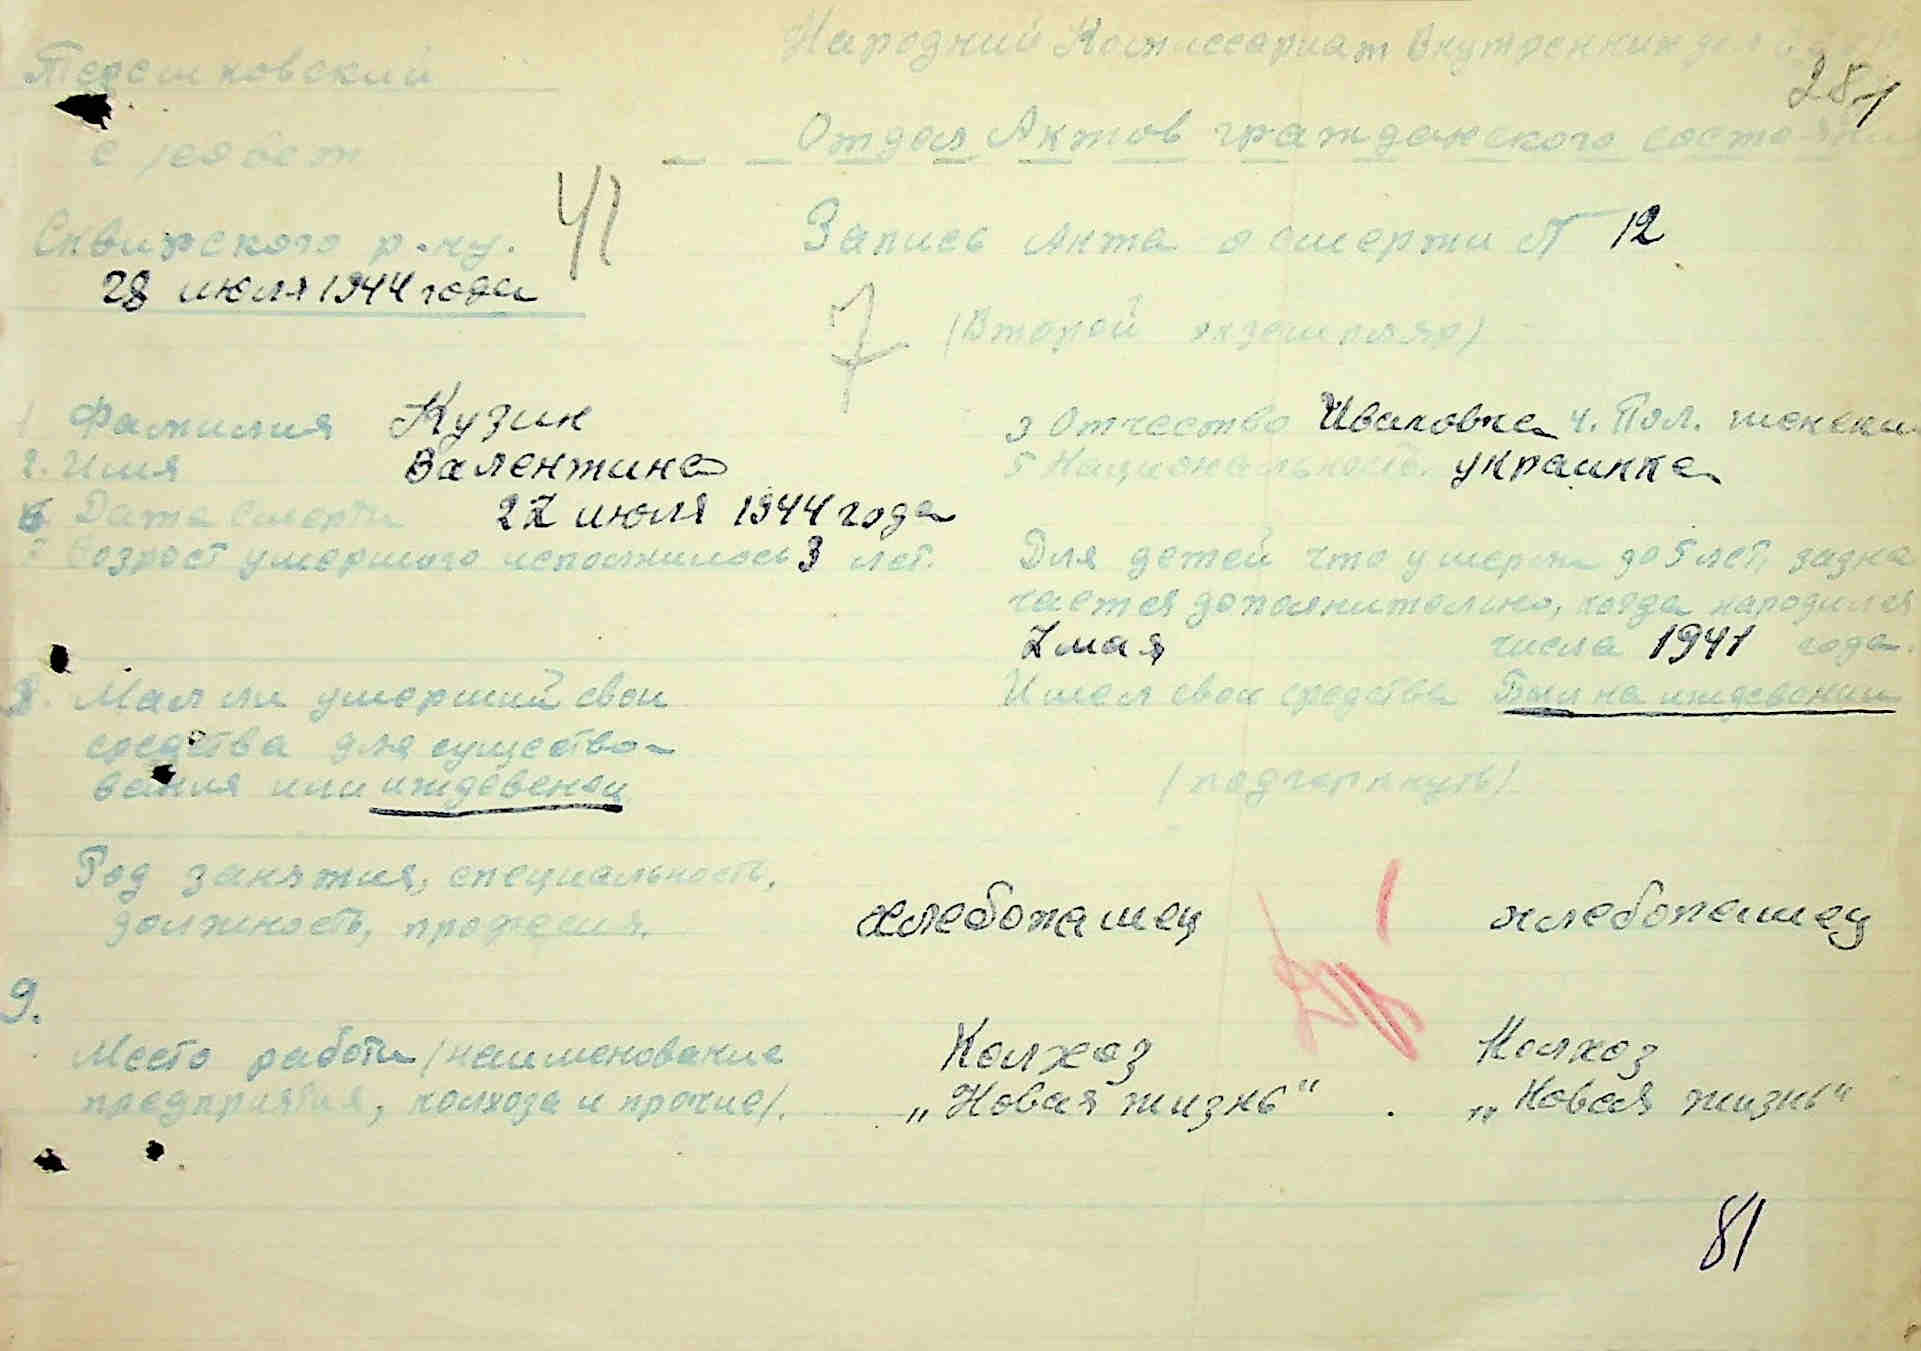 Терешковский
с/совет
Сквирского р-ну.
28 июля 1944 года
41
Народний Комиссариат Внутренних дел
281
Отдел Актов гражданского состояния
Запись Акта о смерти № 12
7
(Второй экземпляр)
1 Фамилия Кузин
3 Отчество Ивановна 4. Пол. женски
2. Имя Валентина
5 Национальность украинка
6. Дата Смерти 27 июля 1944 года
7 Возраст умершого исполнилось 3 лет.
Для детей что умерли до 5 лет, зазна
чается дополнительно, когда народился
7 мая числа 1941 года.
8. Мал ли умерший свои
средства для существо-
вания или иждевенец
Имел свои средства Был на иждевении
(подчеркнуть)
Род занятия, специальность,
должность, професия.
хлебопашец хлебопашец
9.
Место работи (наименование
предприятия, колхоза и прочие).
Колхоз Колхоз
„Новая жизнь" . „Новая жизнь"
81